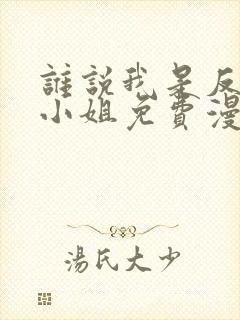 誰說我是反
小姐免費漫
湯氏大少